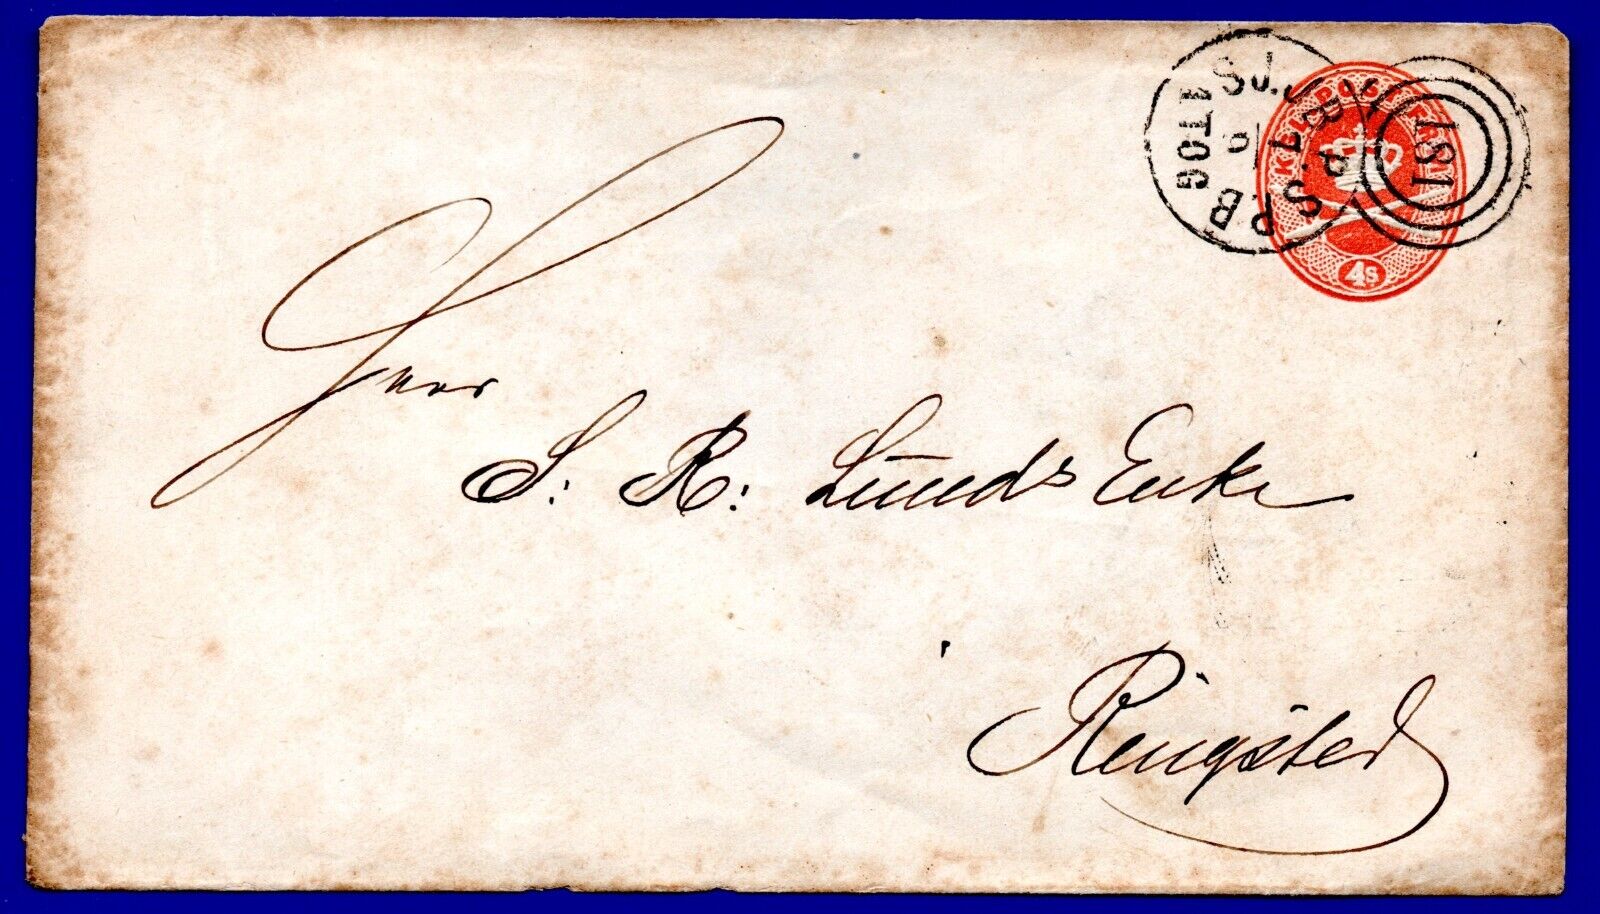 SJ.J.B.P.SP.B 1 TOG
181
KGL POST FRM
4S
Herr
S: R: Lunds Enke
Ringsted